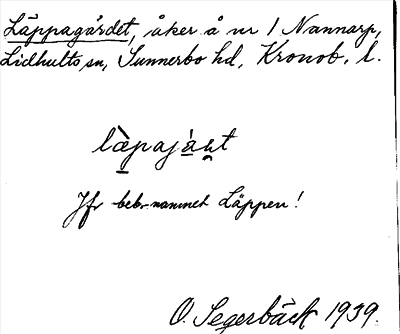 Läppagärdet, åker å nr 1 Nannarp,
Lidhults sn, Sunnerbo hd, Kronob. l.
Jfr beb-namnet Läppen!
O. Segerbäck 1939.